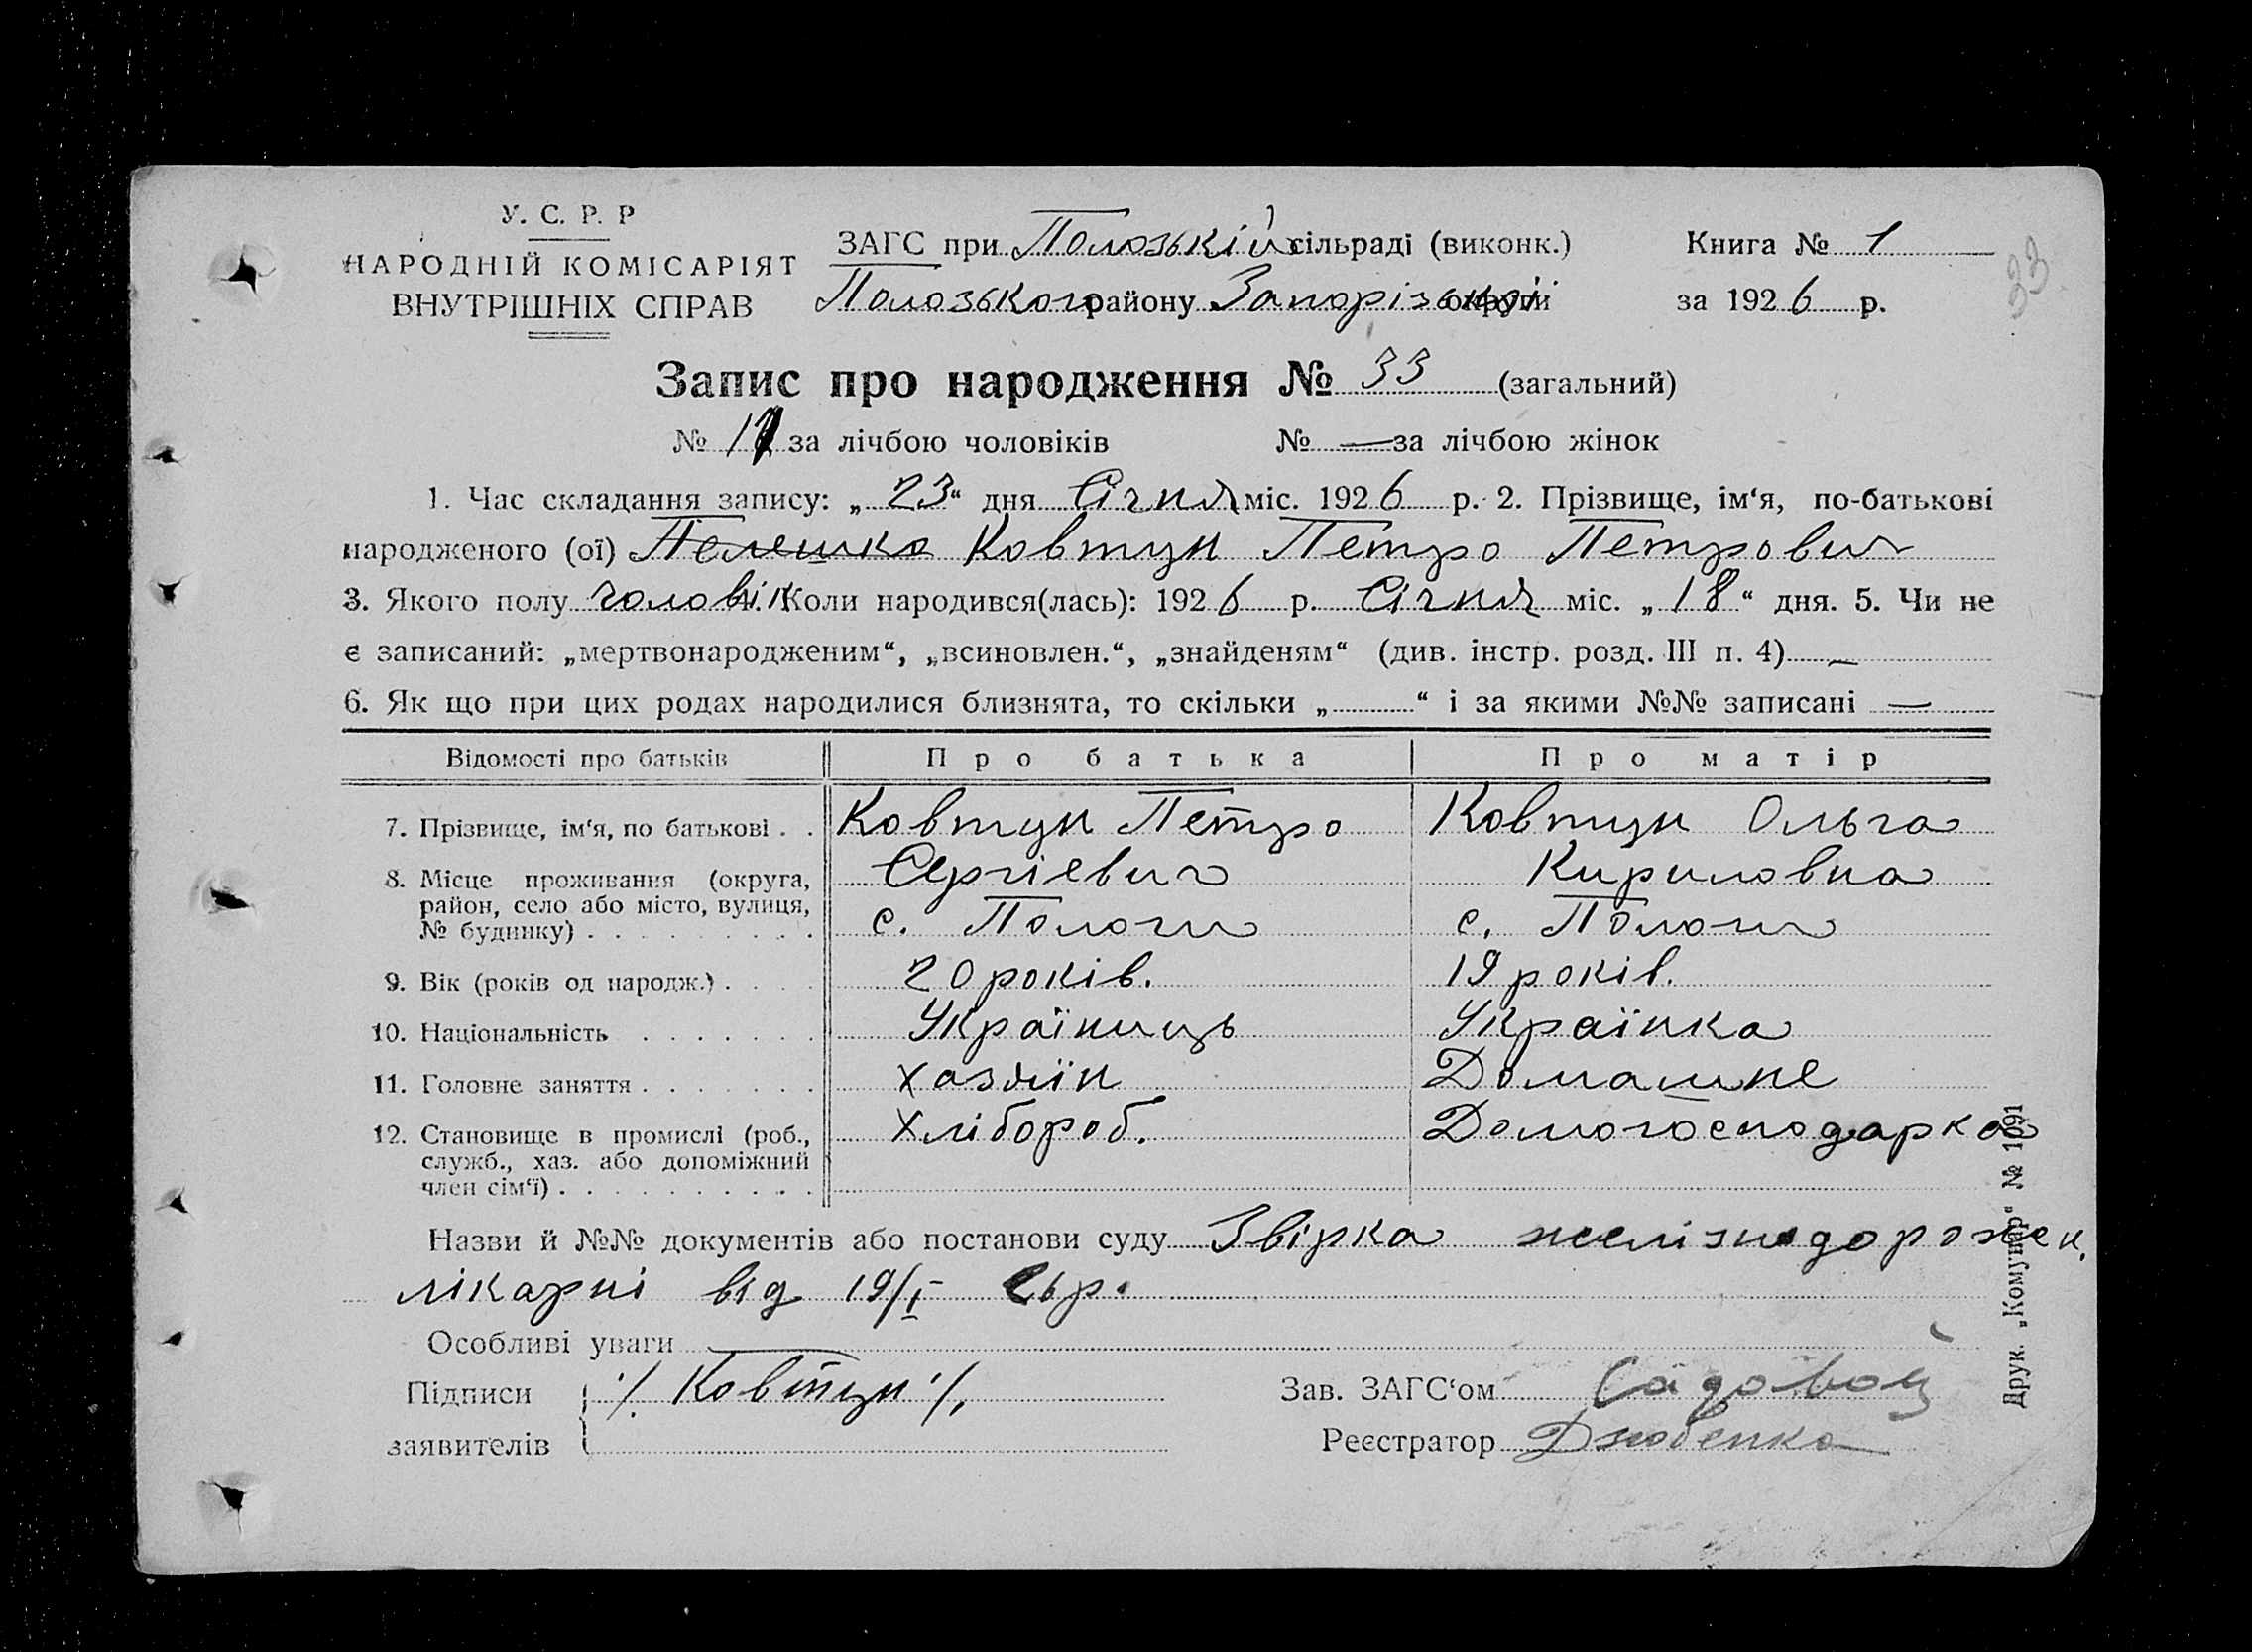 У. С. Р. Р
НАРОДНІЙ КОМІСАРІЯТ
ВНУТРІШНІХ СПРАВ
ЗАГС при Полозькій сільраді (виконк.)
Полозького району Запорізької округи
Книга № 1
за 1926 р.
33
Запис про народження № 33 (загальний)
№ за лічбою чоловіків № — за лічбою жінок
1. Час складання запису: „23“ дня Січня міс. 1926 р. 2. Прізвище, ім‘я, по-батькові
народженого (ої) Ковтун Петро Петрович
3. Якого полу чоловік 4. Коли народився(лась): 1926 р. Січня міс. „18“ дня. 5. Чи не
є записаний: „мертвонародженим“, „всиновлен.“, „знайденям“ (див. інстр. розд. III п. 4) —
6. Як що при цих родах народилися близнята, то скільки „ “ і за якими №№ записані —
Відомості про батьків Про батька Про матір
7. Прізвище, ім‘я, по батькові . . Ковтун Петро Ковтун Ольга
Сергіевич Кириловна
8. Місце проживання (округа,
район, село або місто, вулиця,
№ будинку) . . . . . . . . . с. Пологи с. Пологи
9. Вік (років од народж.) . . . . 20 років. 19 років.
10. Національність . . . . . . . Українець Українка
11. Головне заняття . . . . . . хазяїн Домашне
12. Становище в промислі (роб., Хлібороб. Домогосподарка
служб., хаз. або допоміжний
член сім‘ї) . . . . . . . . . .
Назви й №№ документів або постанови суду Звірка желізнодорожн.
лікарні від 19/I 26 р.
Особливі уваги —
Підписи /. Ковтун /.
заявителів
Зав. ЗАГС‘ом Садовой
Реєстратор Дзюбенко
Друк. „Комунар“ № 1091